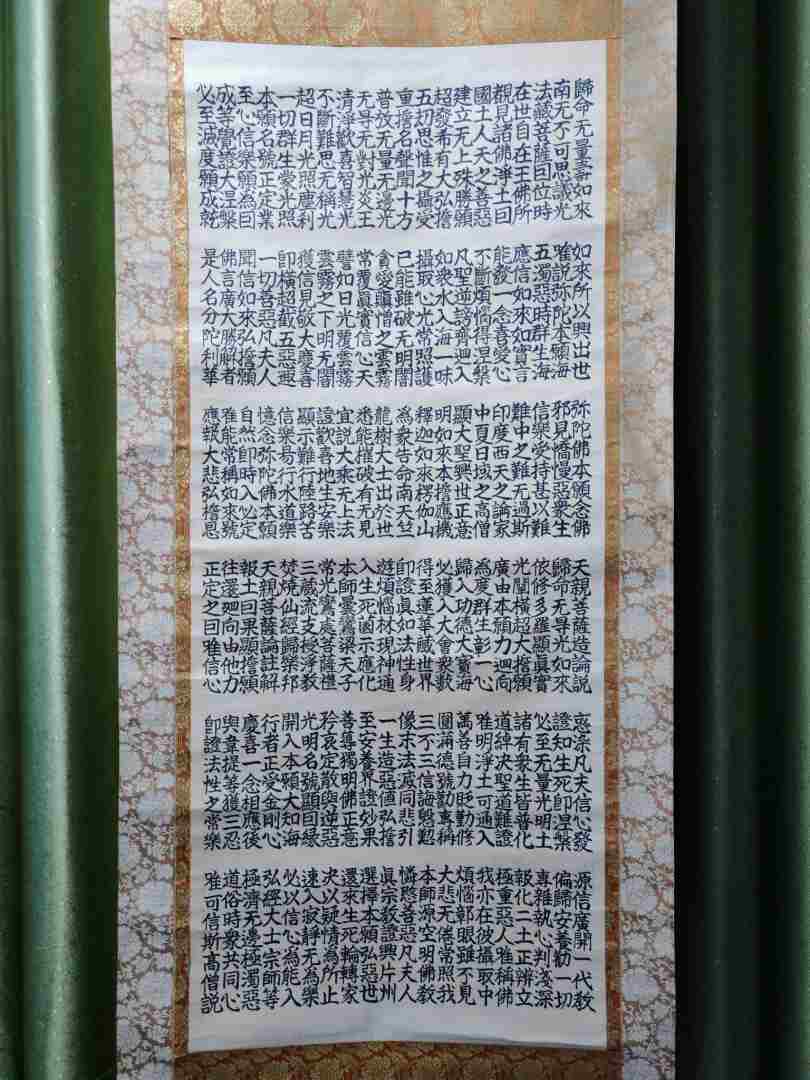 歸命无量壽如來
南无不可思議光
法藏菩薩因位時
在世自在王佛所
覩見諸佛淨土因
國土人天之善惡
建立无上殊勝願
超發希有大弘誓
五劫思惟之攝受
重誓名聲聞十方
普放无量无邊光
无㝵无對光炎王
清淨歡喜智慧光
不斷難思无稱光
超日月光照塵刹
一切群生蒙光照
本願名號正定業
至心信樂願為因
成等覺證大涅槃
必至滅度願成就
如來所以興出世
唯說弥陀本願海
五濁惡時群生海
應信如來如實言
能發一念喜愛心
不斷煩惱得涅槃
凡聖逆謗齊迴入
如衆水入海一味
攝取心光常照護
已能雖破无明闇
貪愛瞋憎之雲霧
常覆眞實信心天
譬如日光覆雲霧
雲霧之下明无闇
獲信見敬大慶喜
即橫超截五惡趣
一切善惡凡夫人
聞信如來弘誓願
佛言廣大勝解者
是人名分陀利華
弥陀佛本願念佛
邪見憍慢惡衆生
信樂受持甚以難
難中之難无過斯
印度西天之論家
中夏日域之高僧
顯大聖興世正意
明如來本誓應機
釋迦如來楞伽山
為衆告命南天竺
龍樹大士出於世
悉能摧破有无見
宣說大乘无上法
證歡喜地生安樂
顯示難行陸路苦
信樂易行水道樂
憶念弥陀佛本願
自然即時入必定
唯能常稱如來號
應報大悲弘誓恩
天親菩薩造論說
歸命无㝵光如來
依修多羅顯眞實
光闡橫超大誓願
廣由本願力迴向
為度群生彰一心
歸入功德大寶海
必獲入大會衆數
得至蓮華藏世界
即證眞如法性身
遊煩惱林現神通
入生死薗示應化
本師曇鸞梁天子
常光鸞處菩薩禮
三藏流支授淨教
焚燒仙經歸樂邦
天親菩薩論註解
報土因果顯誓願
往還迴向由他力
正定之因唯信心
惑染凡夫信心發
證知生死即涅槃
必至无量光明土
諸有衆生皆普化
道綽決聖道難證
唯明淨土可通入
萬善自力貶勤修
圓滿德號勸專稱
三不三信誨慇懃
像末法滅同悲引
一生造惡値弘誓
至安養界證妙果
善導獨明佛正意
矜哀定散與逆惡
光明名號顯因縁
開入本願大知海
行者正受金剛心
慶喜一念相應後
與韋提等獲三忍
即證法性之常樂
源信廣開一代教
偏歸安養勸一切
專雜執心判淺深
報化二土正辨立
極重惡人唯稱佛
我亦在彼攝取中
煩惱鄣眼雖不見
大悲无倦常照我
本師源空明佛教
憐愍善惡凡夫人
眞宗教證興片州
選擇本願弘惡世
還來生死輪轉家
決以疑情為所止
速入寂靜无為樂
必以信心為能入
弘經大士宗師等
極濟无邊極濁惡
道俗時衆共同心
唯可信斯高僧說